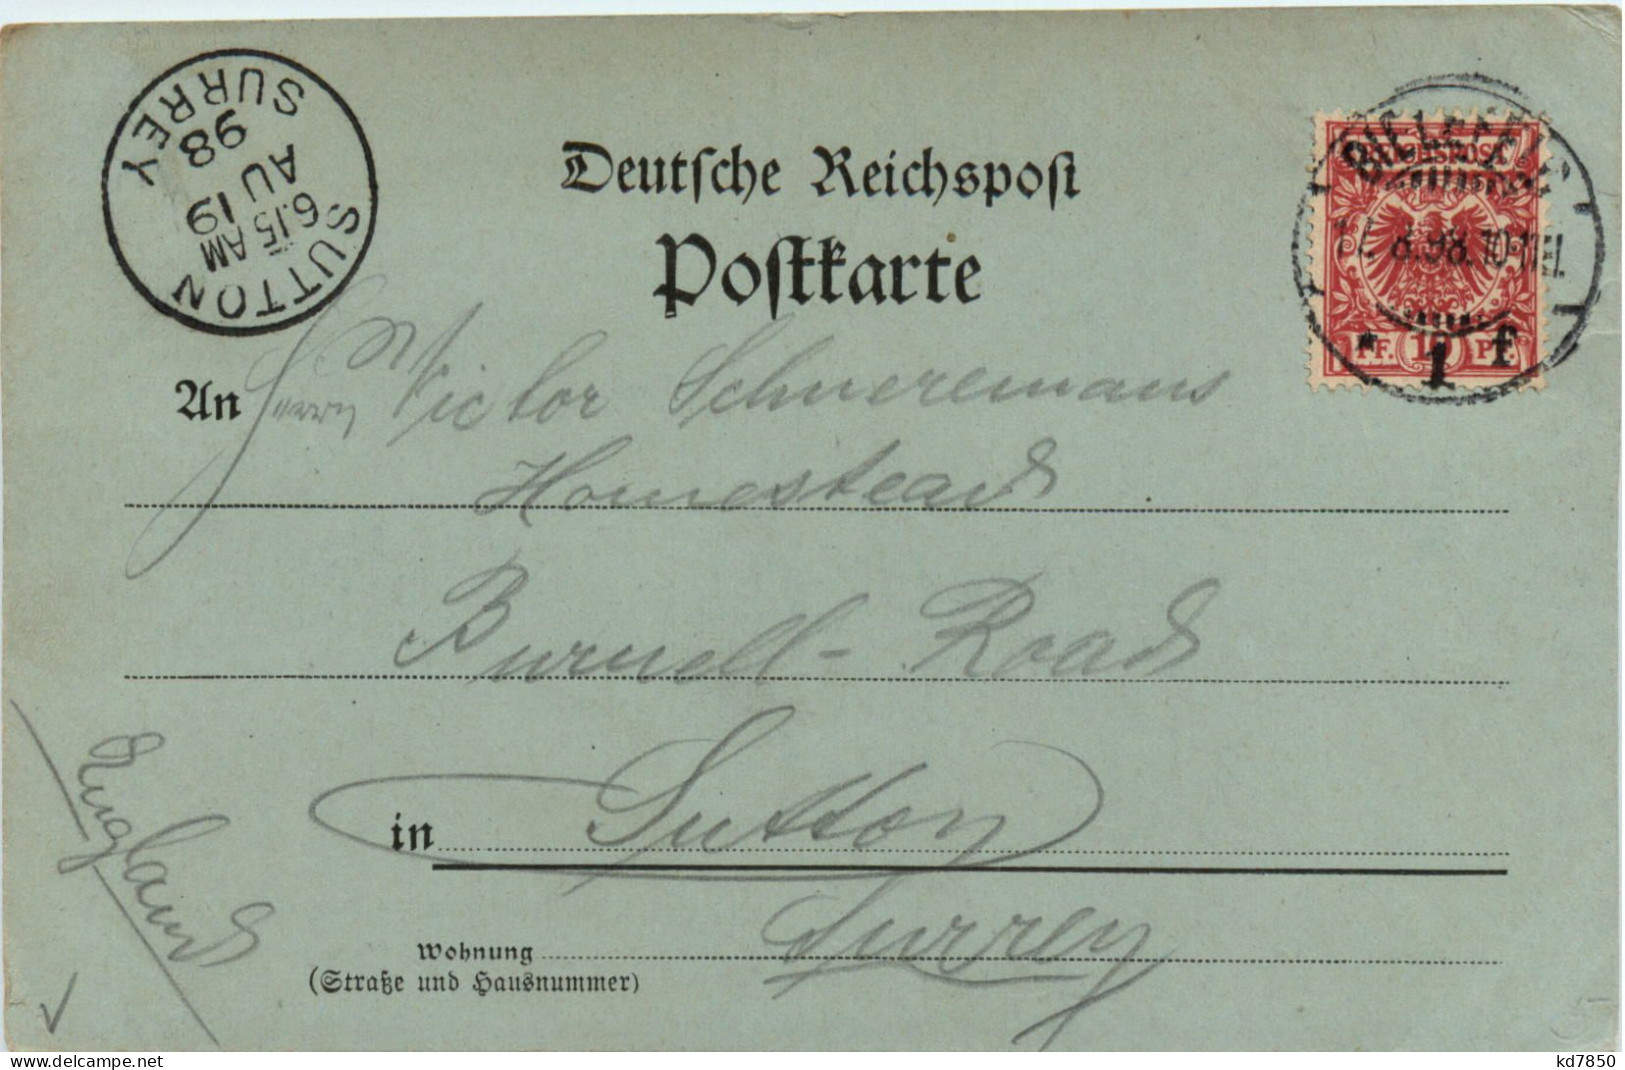 SUTTON
6.15 AM
AU 19
98
SURREY
Deutsche Reichspost
Postkarte
BIELEFELD
REICHSPOST
17. 8.98. 10-11 V.
* 1 f
PF. 10 PF.
An Herrn Victor Schueremans
Homestead
Burnell-Road
in Sutton
Surrey
England
Wohnung
(Straße und Hausnummer)
delcampe.net
kd7850